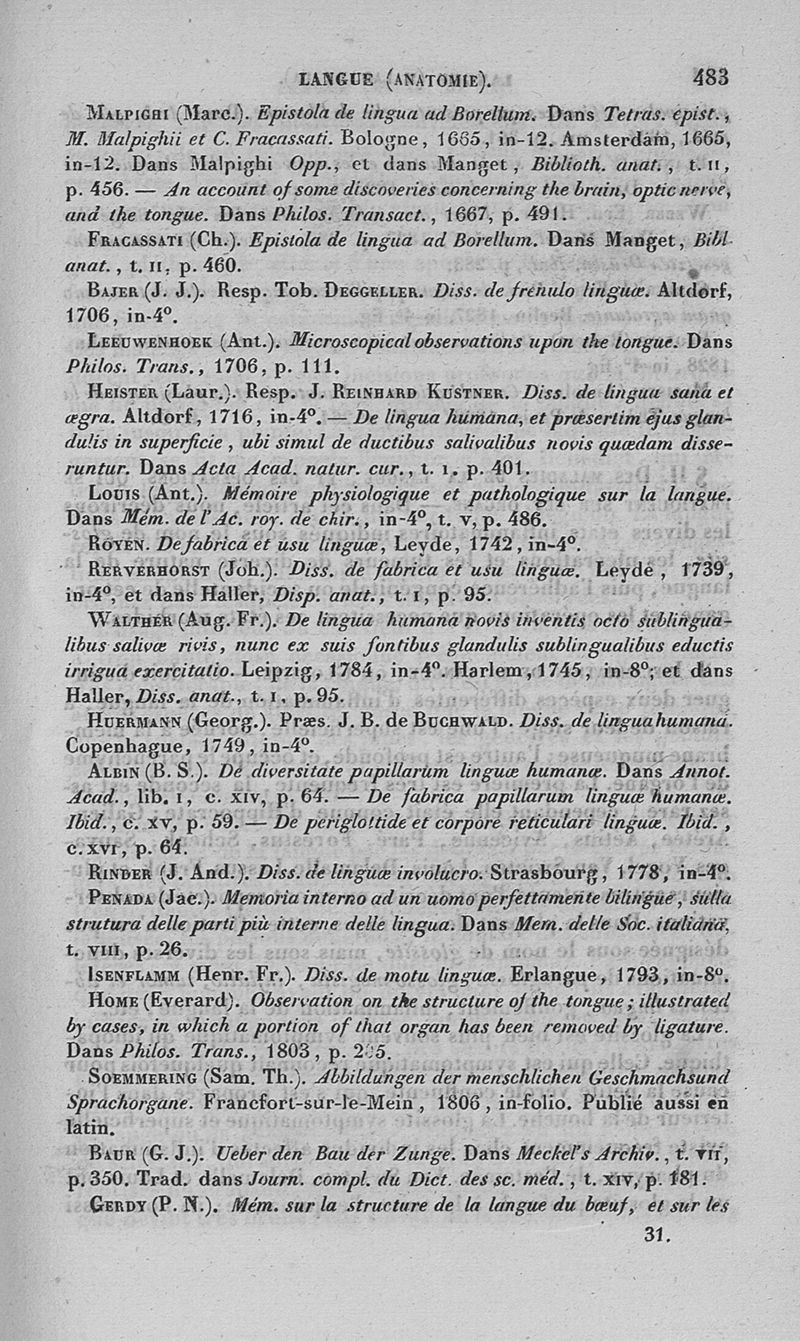 LANGUE (ANATOMIE). 483
MALPIGHI (Marc.). Epistola de lingua ad Borellum. Dans Tetras. epist.,
M. Malpighii et C. Fracassati. Bologne, 1665, in-12. Amsterdam, 1665,
in-12. Dans Malpighi Opp., et dans Manget, Biblioth. anat., t. II,
p. 456. — An account of some discoveries concerning the brain, optic nerve,
and the tongue. Dans Philos. Transact., 1667, p. 491.
FRACASSATI (Ch.). Epistola de lingua ad Borellum. Dans Manget, Bibl.
anat., t. II, p. 460.
BAJER (J. J.). Resp. Tob. DEGGELLER. Diss. de frenulo linguæ. Altdorf,
1706, in-4°.
LEEUWENHOEK (Ant.). Microscopical observations upon the tongue. Dans
Philos. Trans., 1706, p. 111.
HEISTER (Laur.). Resp. J. REINHARD KUSTNER. Diss. de lingua sana et
ægra. Altdorf, 1716, in-4°. — De lingua humana, et præsertim ejus glan-
dulis in superficie, ubi simul de ductibus salivalibus novis quædam disse-
runtur. Dans Acta Acad. natur. cur., t. I. p. 401.
LOUIS (Ant.). Mémoire physiologique et pathologique sur la langue.
Dans Mém. de l'Ac. roy. de chir., in-4°, t. V, p. 486.
ROYEN. De fabrica et usu linguæ, Leyde, 1742, in-4°.
RERVERHORST (Joh.). Diss. de fabrica et usu linguæ. Leyde, 1739,
in-4°, et dans Haller, Disp. anat., t. I, p. 95.
WALTHER (Aug. Fr.). De lingua humana novis inventis octo sublingua-
libus salivæ rivis, nunc ex suis fontibus glandulis sublingualibus eductis
irrigua exercitatio. Leipzig, 1784, in-4°. Harlem, 1745, in-8°; et dans
Haller, Diss. anat., t. I, p. 95.
HUERMANN (Georg.). Præs. J. B. de BUCHWALD. Diss. de lingua humana.
Copenhague, 1749, in-4°.
ALBIN (B. S.). De diversitate papillarum linguæ humanæ. Dans Annot.
Acad., lib. I, c. XIV, p. 64. — De fabrica papillarum linguæ humanæ.
Ibid., c. XV, p. 59. — De periglottide et corpore reticulari linguæ. Ibid.,
c. XVI, p. 64.
RINDER (J. And.). Diss. de linguæ involucro. Strasbourg, 1778, in-4°.
PENADA (Jac.). Memoria interno ad un uomo perfettamente bilingüe, sulla
strutura delle parti più interne delle lingua. Dans Mem. delle Soc. italiana,
t. VIII, p. 26.
ISENFLAMM (Henr. Fr.). Diss. de motu linguæ. Erlangue, 1793, in-8°.
HOME (Everard). Observation on the structure of the tongue; illustrated
by cases, in which a portion of that organ has been removed by ligature.
Dans Philos. Trans., 1803, p.
SOEMMERING (Sam. Th.). Abbildungen der menschlichen Geschmachsund
Sprachorgane. Francfort-sur-le-Mein, 1806, in-folio. Publié aussi en
latin.
BAUR (G. J.). Ueber den Bau der Zunge. Dans Meckel's Archiv., t. VII,
p. 350. Trad. dans Journ. compl. du Dict. des sc. méd., t. XIV, p. 181.
GERDY (P. N.). Mém. sur la structure de la langue du bœuf, et sur les
31.